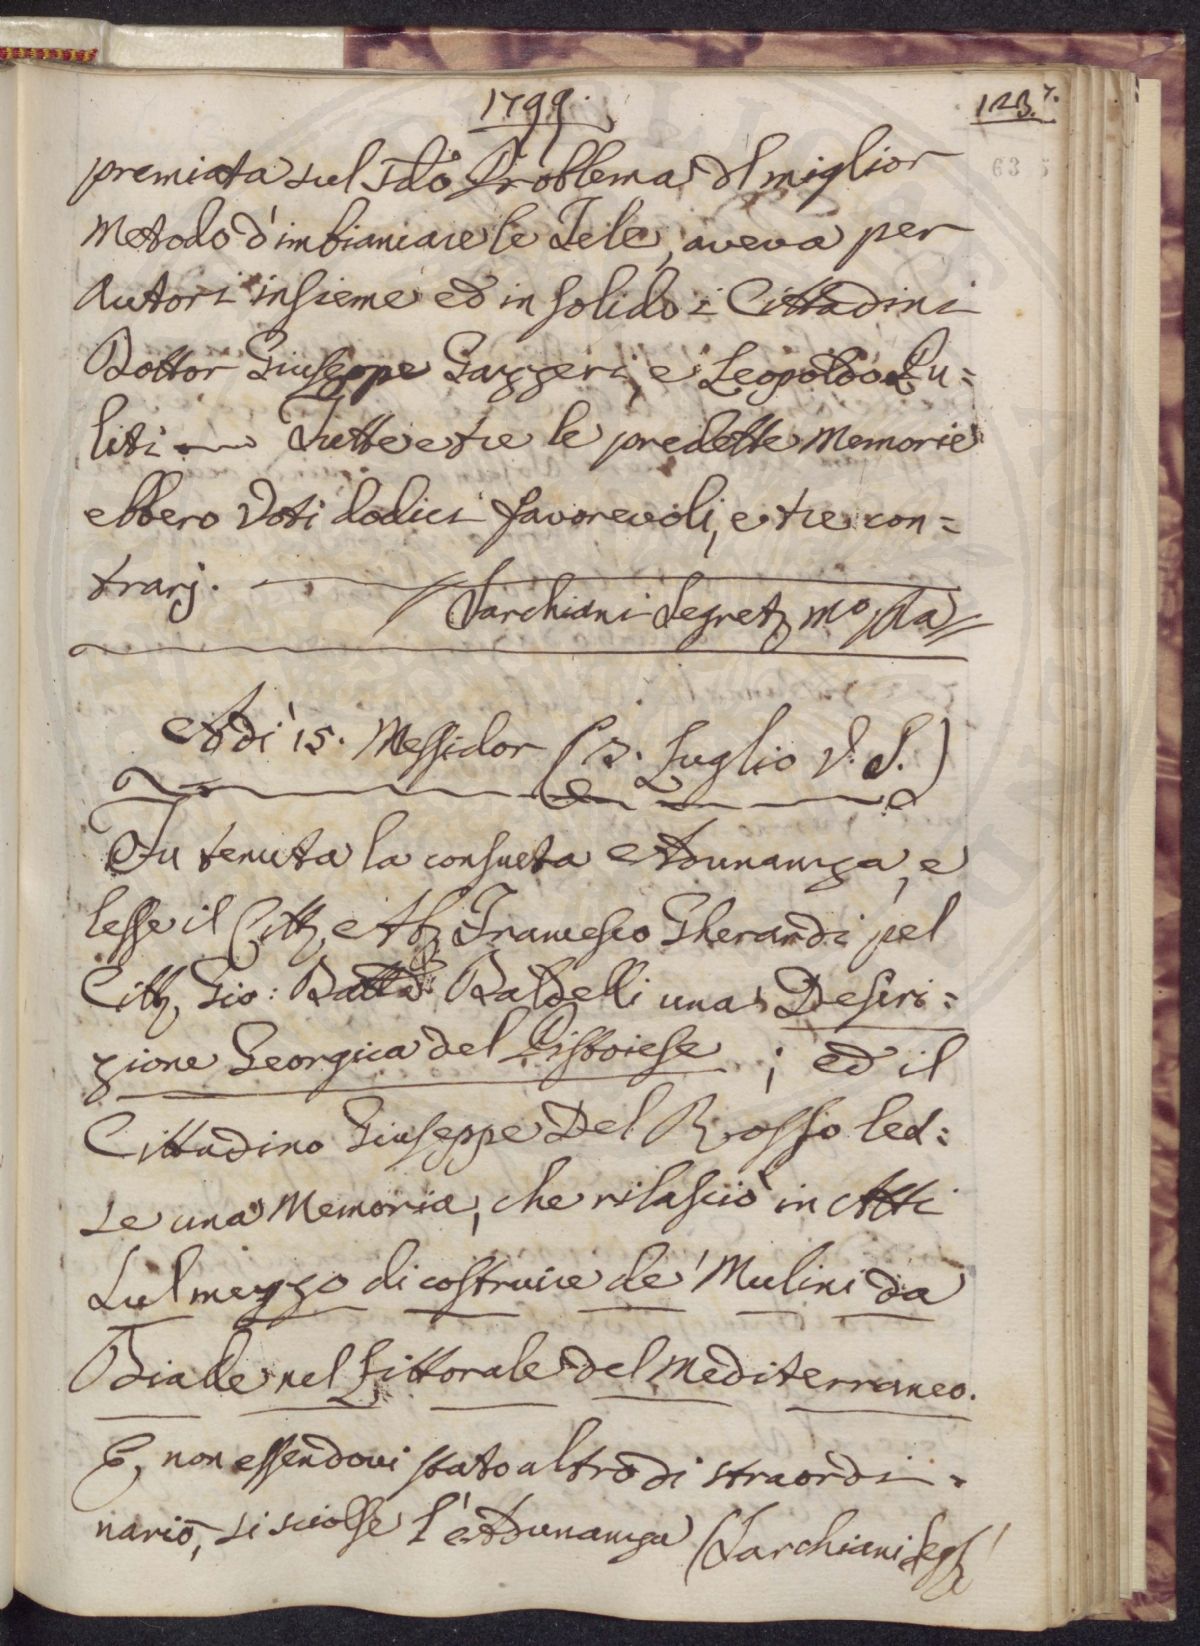 1799.
123.
premiata sul Sdo. Problema, del miglior
Metodo d'imbiancare le Tele, aveva per
Autori insieme ed in solido i Cittadini
Dottor Giuseppe Gazzeri, e Leopoldo Pu=
liti — Tutte e tre le predette Memorie
ebbero Voti dodici favorevoli, e tre con=
trarj.
Sarchiani Segret.
Adì 15. Messidor (3. Luglio V. S.)
Fu tenuta la consueta Adunanza, e
lesse il Citt. Ab. Francesco Gherardi pel
Citt. Gio: Batta. Baldelli una Descri=
zione Georgica del Pistoiese ; ed il
Cittadino Giuseppe Del Rosso les=
se una Memoria, che rilasciò in Atti
Sul mezzo di costruire de' Mulini da
Biade nel Littorale del Mediterraneo.
E, non essendovi stato altro di straordi=
nario, si sciolse l'Adunanza Sarchiani Seg.